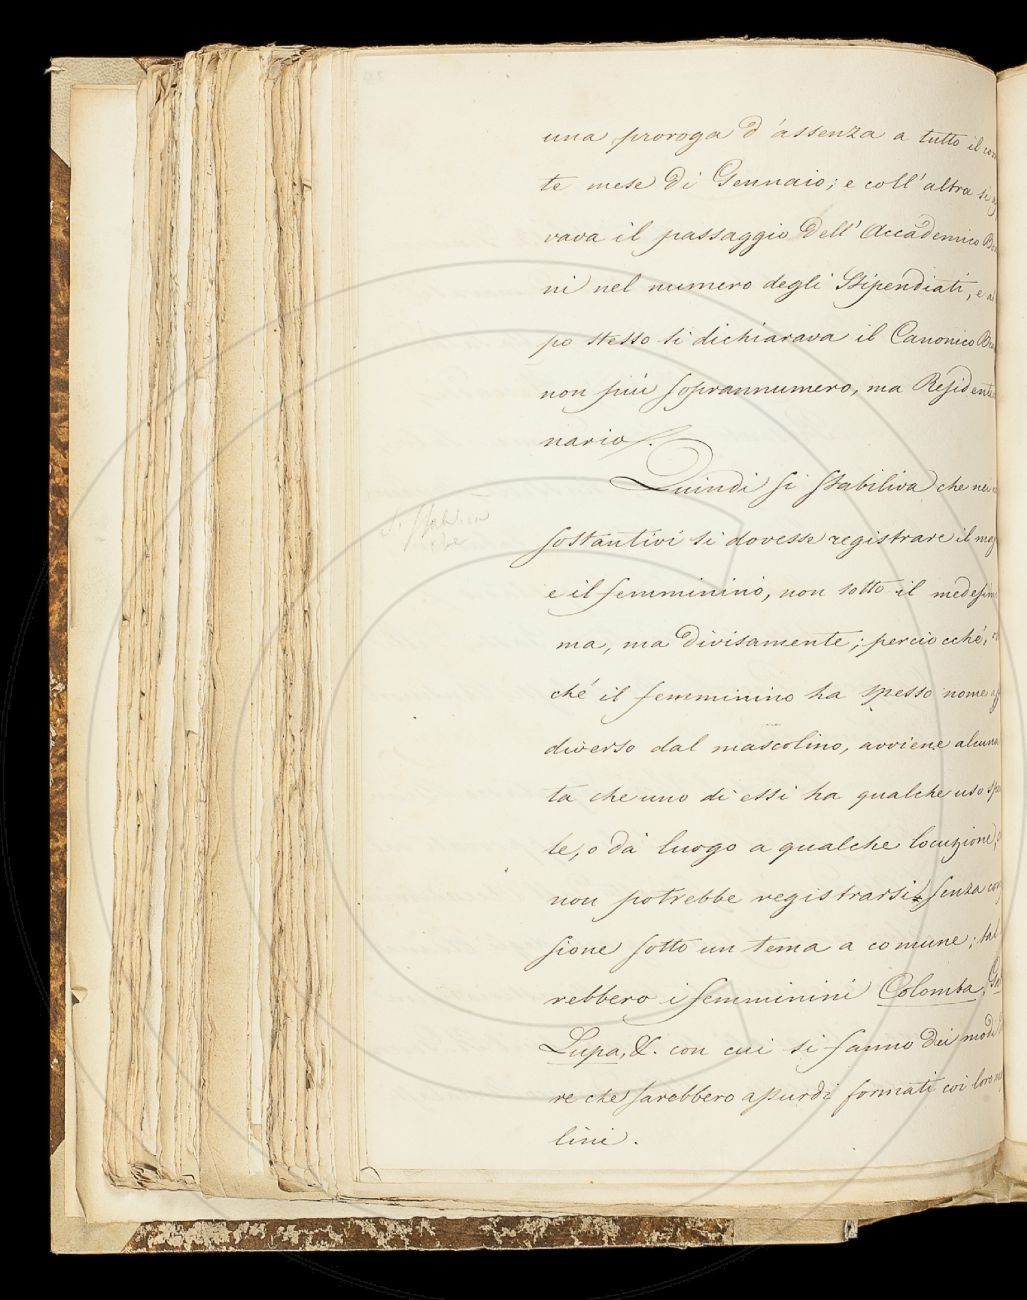 una proroga d'assenza a tutto il
te mese di Gennaio; e coll'altra si
vava il passaggio dell'Accademico
ni nel numero degli Stipendiati, e
po stesso si dichiarava il Canonico
non più soprannumero, ma Resident
nario.
Quindi si stabiliva che nei
sostantivi si dovesse registrare il
e il femminino, non sotto il medesi
ma, ma divisamente; perciocché,
ché il femminino ha spesso nome
diverso dal mascolino, avviene alcuna
ta che uno di essi ha qualche uso
le, o dà luogo a qualche locuzione,
non potrebbe registrarsi senza
sione sotto un tema a comune; tal
rebbero i femminini Colomba,
Lupa, &. con cui si fanno dei modi
re che sarebbero assurdi formati coi loro
lini.